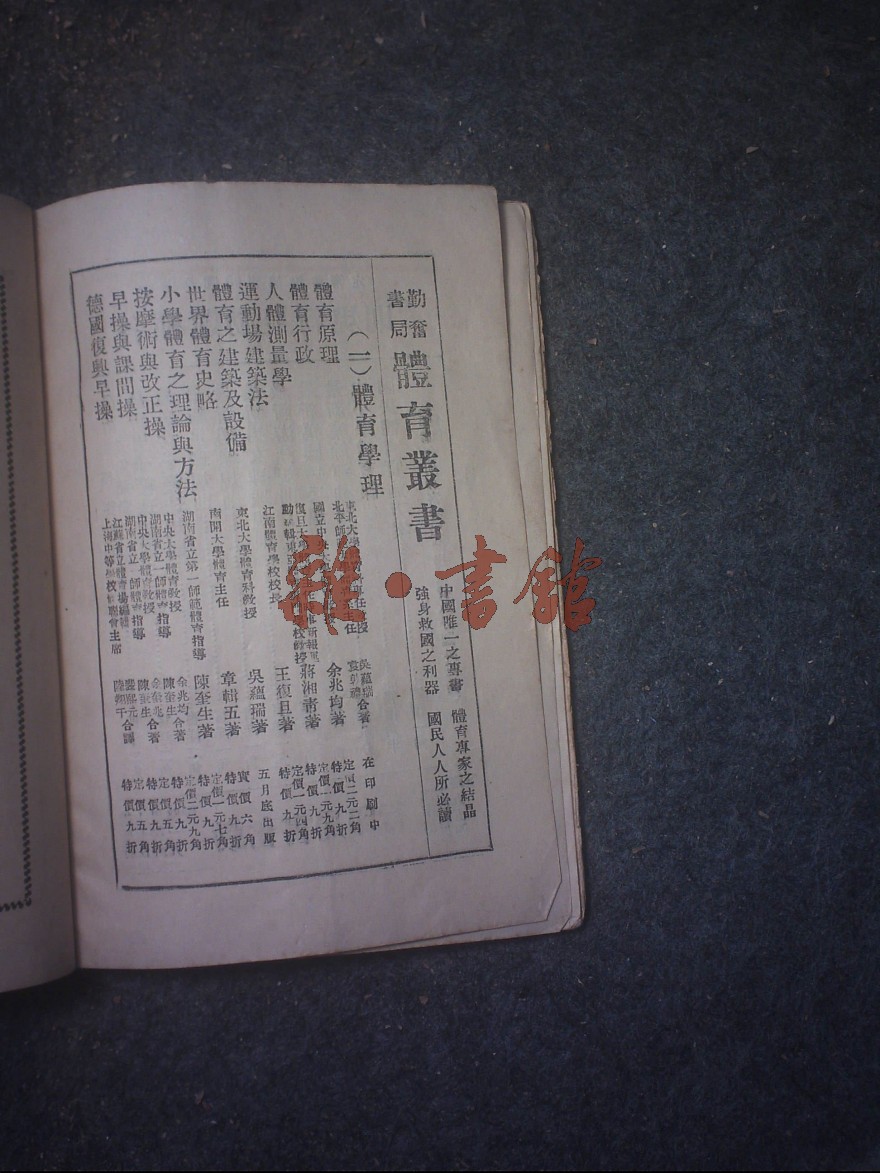 勤奮書局
體育叢書
中國唯一之專書 體育專家之結晶
強身救國之利器 國民人人所必讀
(一)體育學理
體育原理
吳蘊瑞
合著
在印刷中
體育行政
余兆均著
定價二元二角
特價九折
人體測量學
蔣湘青著
定價一元九角
特價九折
運動場建築法
江南體育學校校長
王復旦著
定價一元四角
特價九折
體育之建築及設備
東北大學體育科教授
吳蘊瑞著
五月底出版
世界體育史略
南開大學體育主任
章輯五著
實價六角
特價九折
小學體育之理論與方法
湖南省立第一師範體育指導
陳奎生著
定價一元七角
特價九折
按摩術與改正操
中央大學體育教授
湖南省立一師體育指導
余兆均
陳奎生
合著
定價二元九角
特價九折
早操與課間操
中央大學體育教授
湖南省立一師體育指導
余兆均
陳奎生
合著
定價五角
特價九折
德國復興早操
江蘇省立體育場
上海中等學校
聯會主席
合譯
定價五角
特價九折
雜·書館